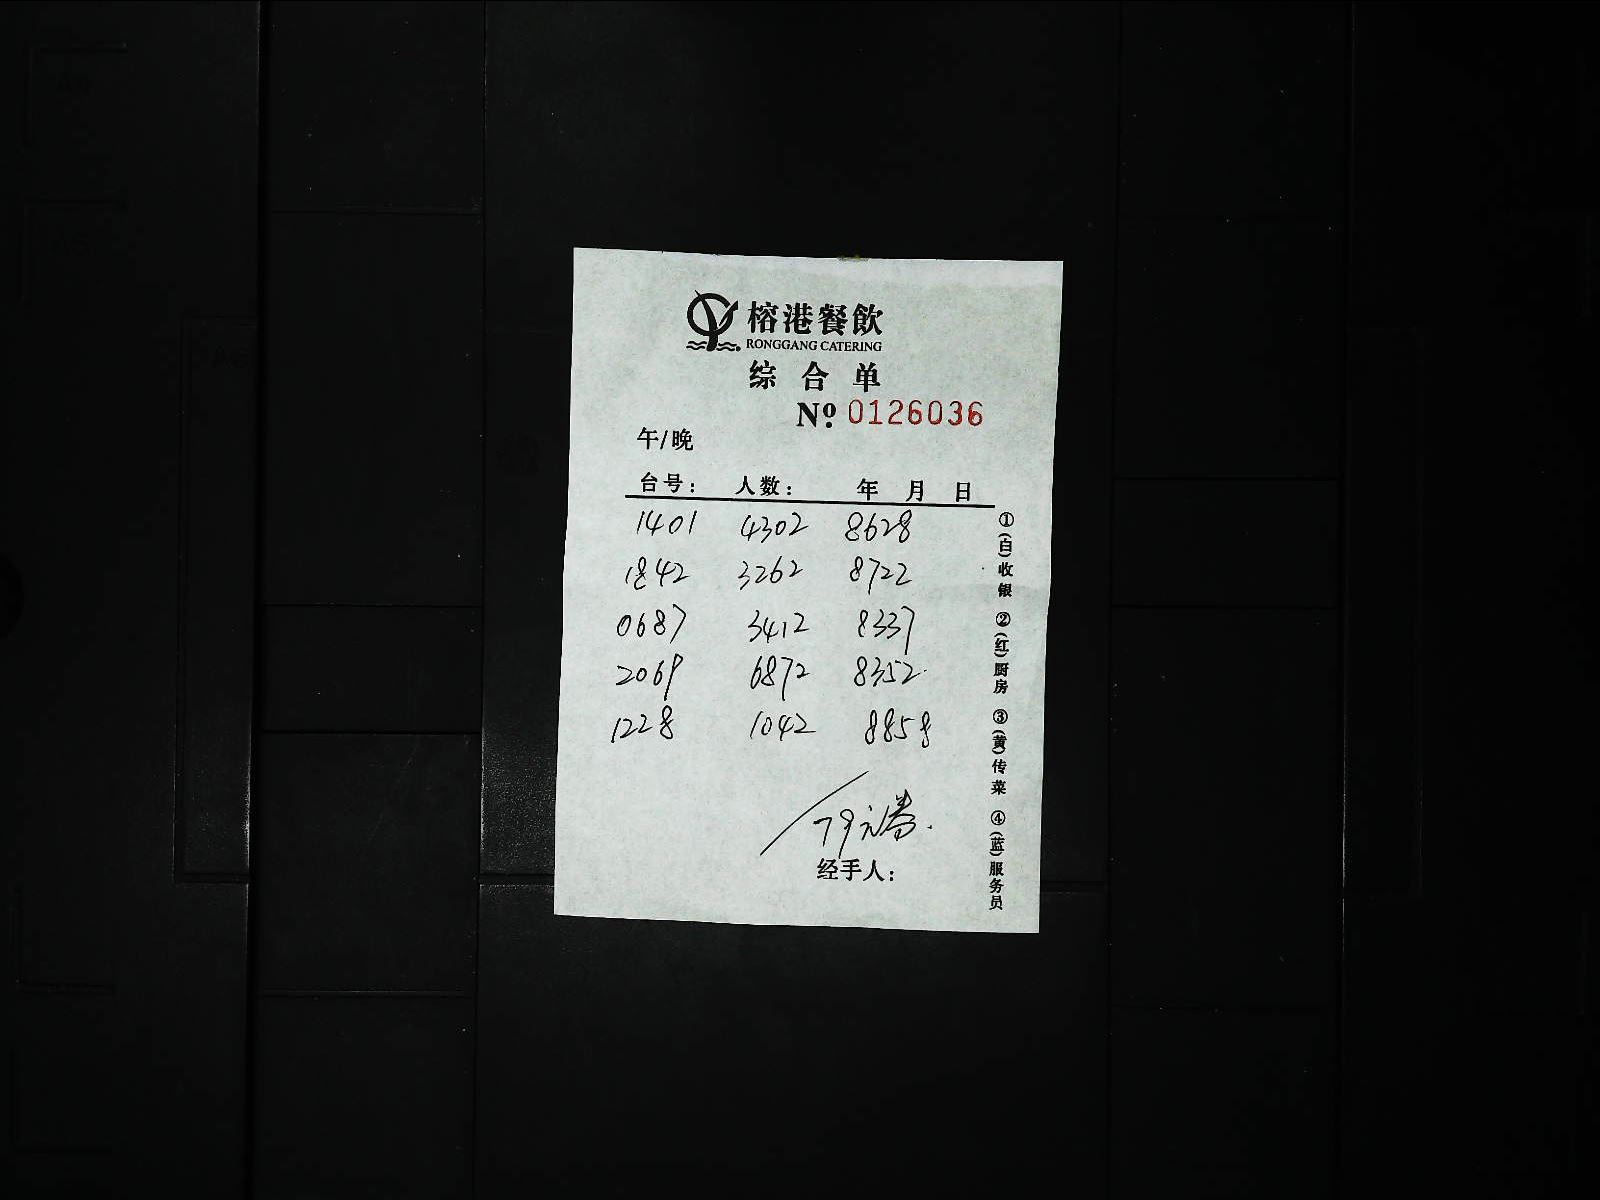 榕港餐飲
RONGGANG CATERING
综合单
Nº 0126036
午/晚
台号： 人数： 年 月 日
1401 4302 8628
1842 3262 8722
0687 3412 8337
2069 6872 8352
1228 1042 8858
经手人：
①(白)收银 ②(红)厨房 ③(黄)传菜 ④(蓝)服务员